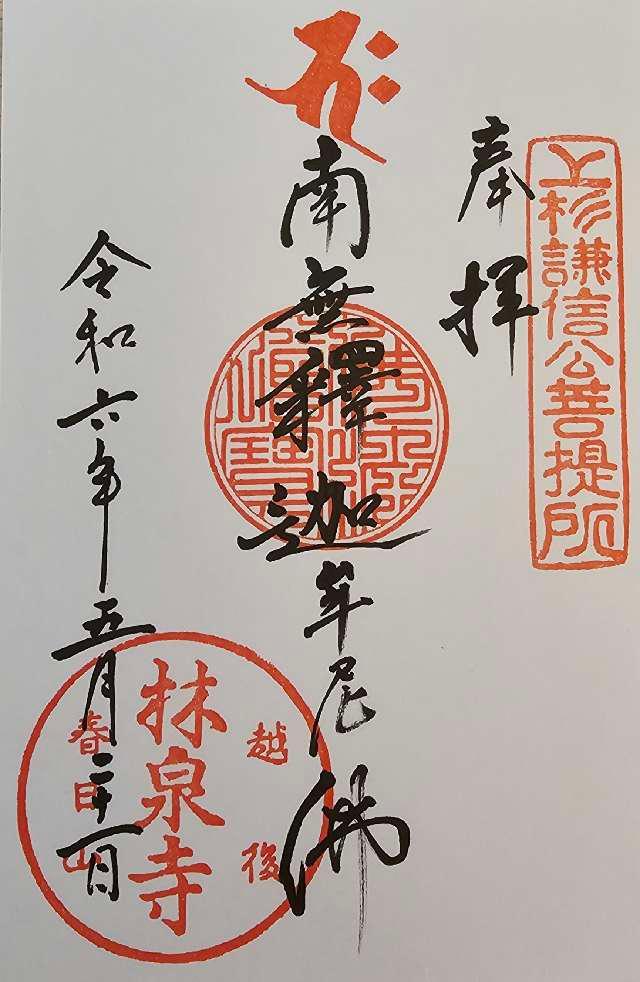 上杉謙信公菩提所
奉拝
南無釋迦牟尼佛
越後
林泉寺
春日山
令和六年五月二十一日